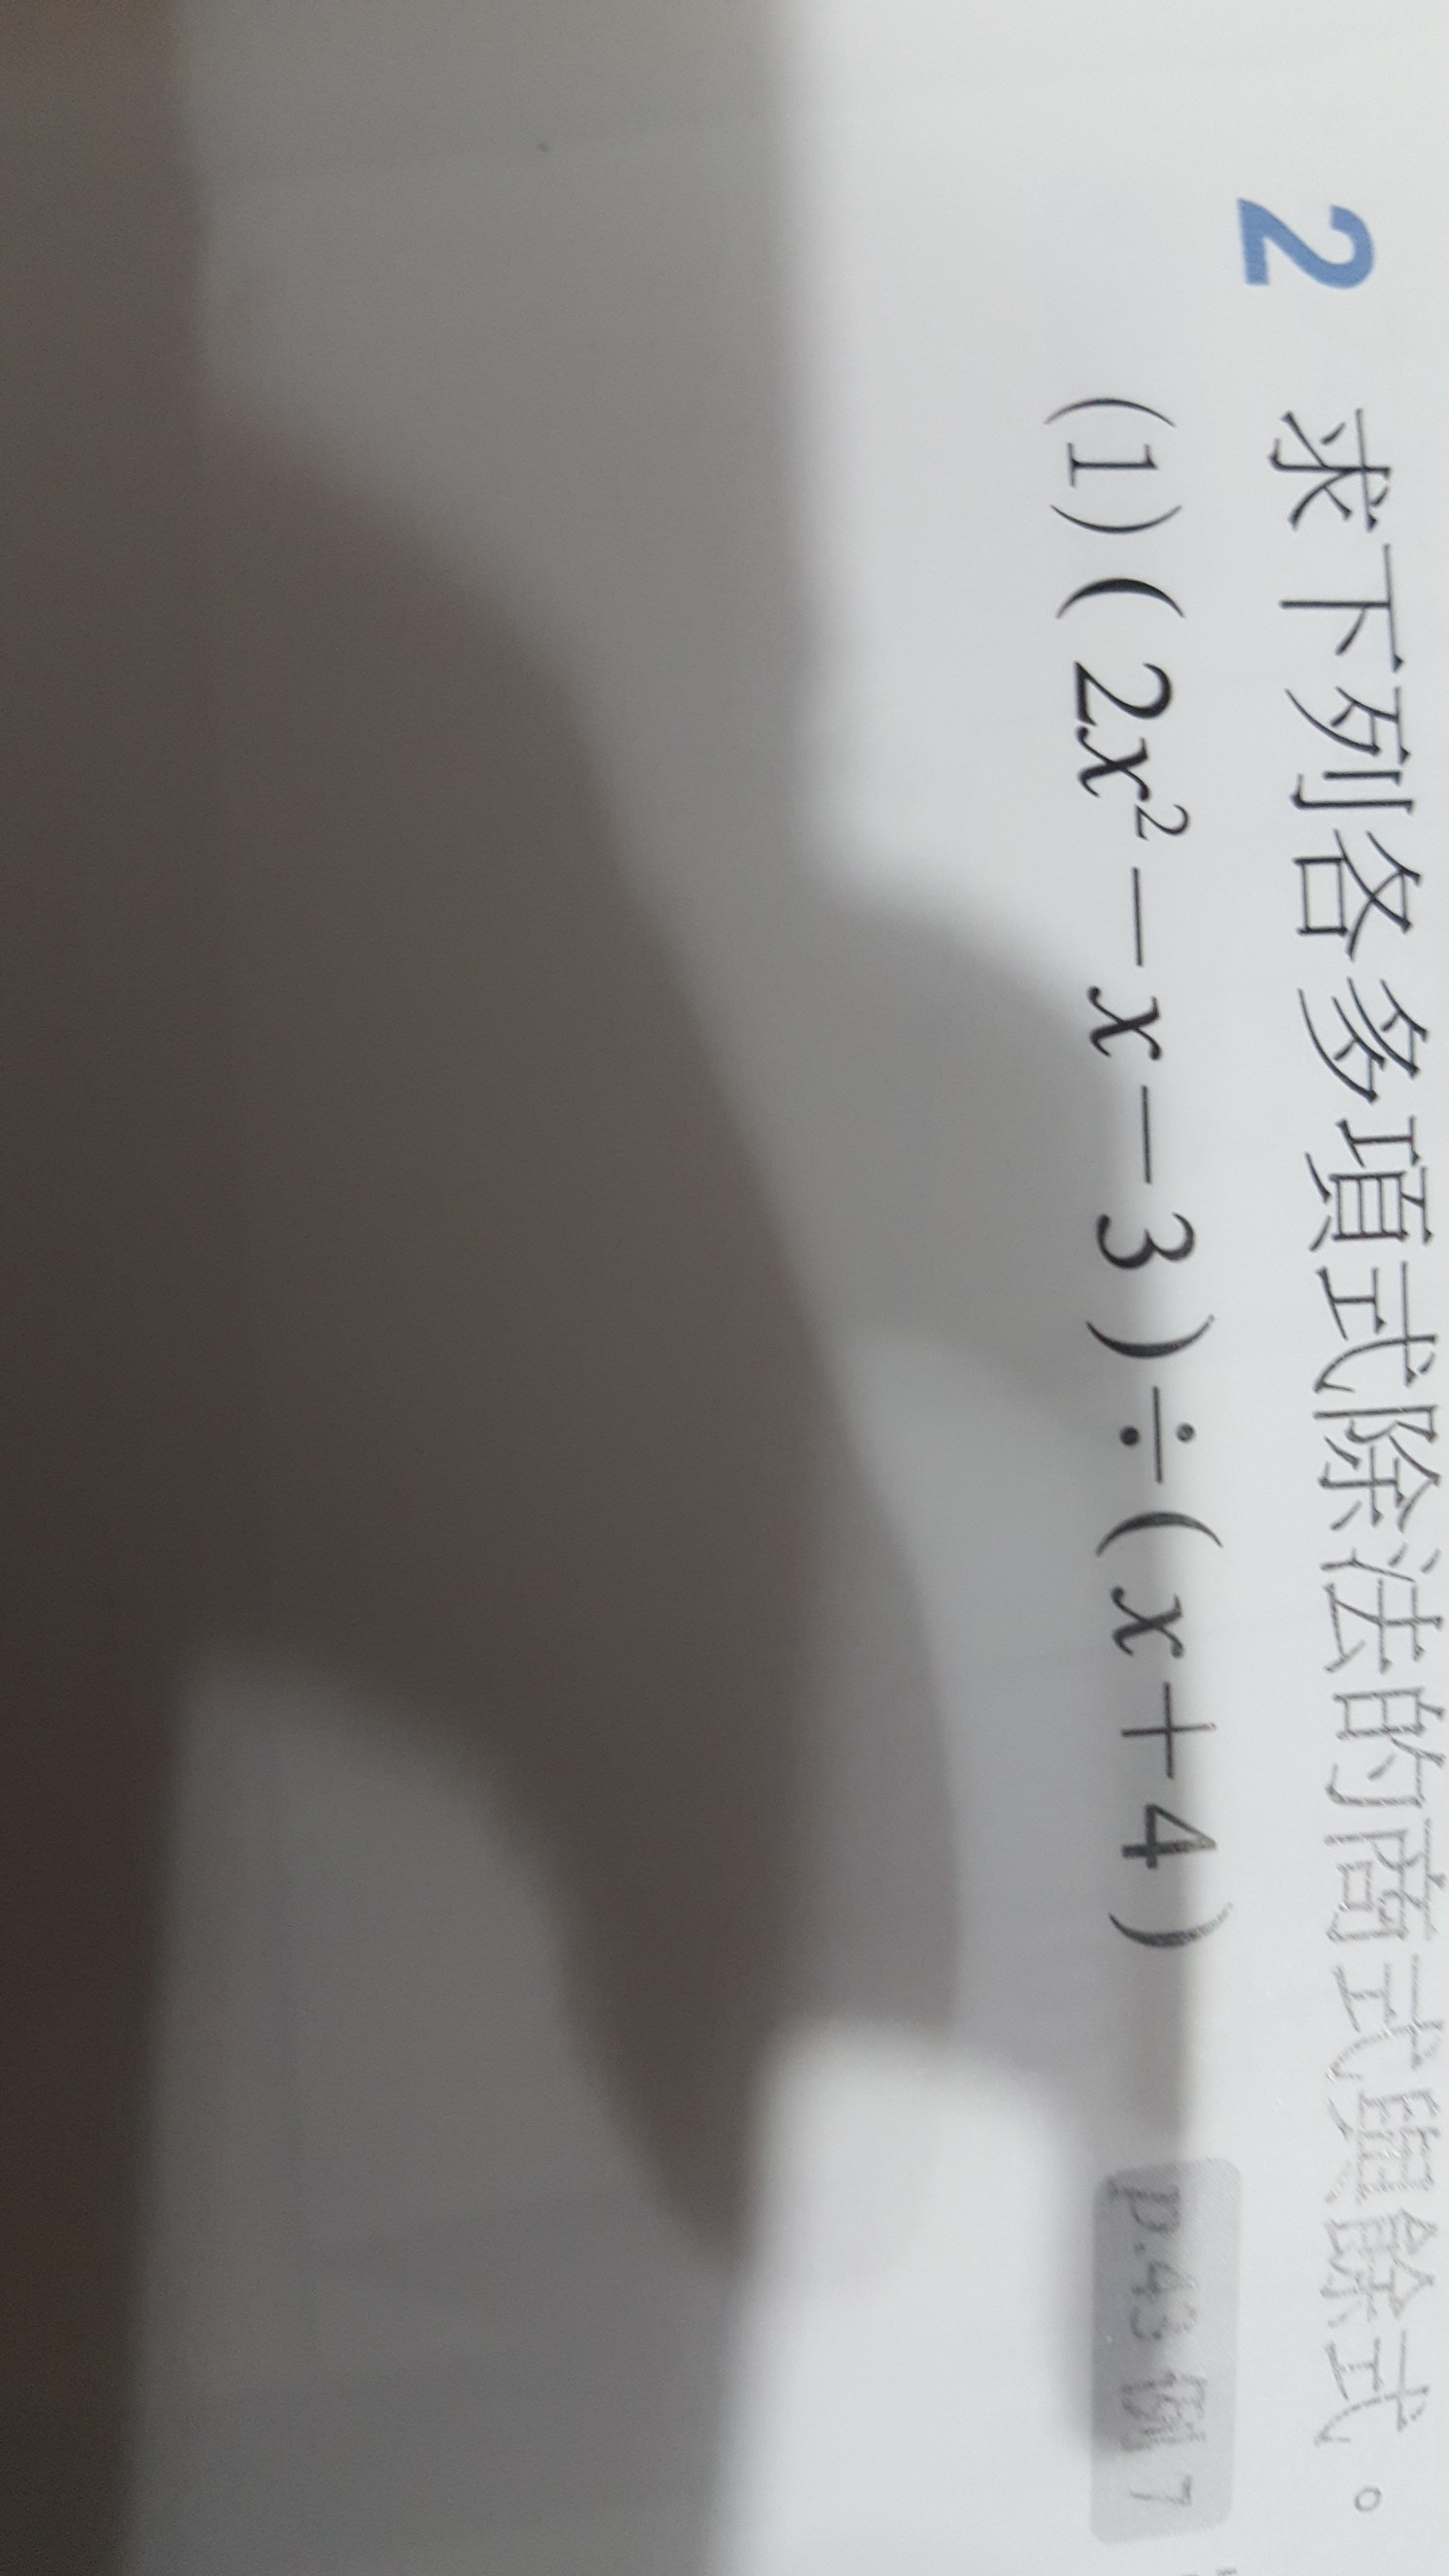 2 求下列各多項式除法的商式與餘式。
(1) ( 2x² − x − 3 ) ÷ ( x + 4 )
p.43 例 7